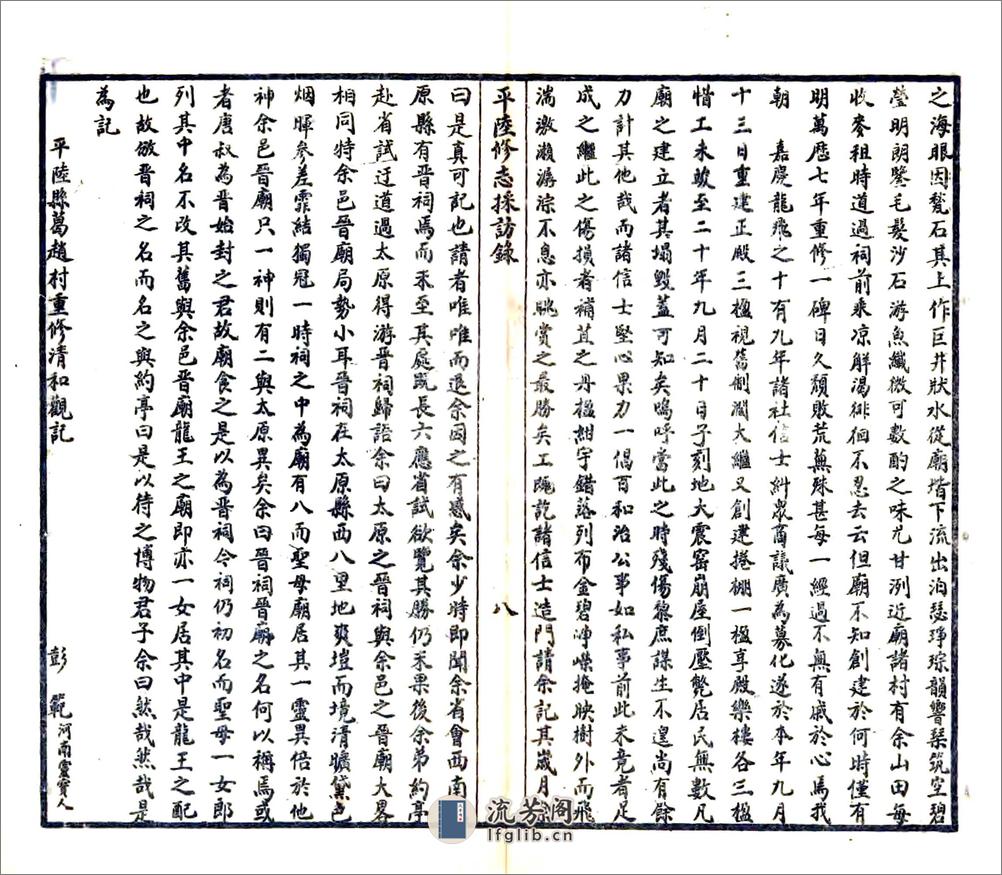 之海眼因甃石其上作巨井狀水從廟堦下流出泊瑟琤琮韻響琴筑空碧
瑩明朗鑒毛髮沙石游魚纖微可數酌之味尤甘洌近廟諸村有余山田每
收麥租時道過祠前乘凉解渴徘徊不忍去云但廟不知創建於何時僅有
明萬歷七年重修一碑日久頹敗荒蕪殊甚每一經過不無有戚於心焉我
朝　嘉慶龍飛之十有九年諸社信士糾眾商議廣為募化遂於本年九月
十三日重建正殿三楹視舊制濶大繼又創建捲棚一楹享殿樂樓各三楹
惜工未竣至二十年九月二十日子刻地大震窰崩屋倒壓斃居民無數凡
廟之建立者其塌毀蓋可知矣嗚呼當此之時殘傷黎庶謀生不遑尚有餘
力計其他哉而諸信士堅心果力一倡百和治公事如私事前此未竟者足
成之繼此之傷損者補苴之丹楹紺宇錯落列布金碧崢嶸掩映樹外而飛
湍激瀨潺淙不息亦眺賞之最勝矣工既訖諸信士造門請余記其歲月余
平陸修志採訪錄　八
曰是真可記也請者唯唯而退余因之有感矣余少時即聞余省會西南
原縣有晋祠焉而未至其處既長六應省試欲覽其勝仍未果後余弟約亭
赴省試迂道過太原得游晋祠歸語余曰太原之晋祠與余邑之晋廟大畧
相同特余邑晋廟局勢小耳晋祠在太原縣西八里地爽塏而境清曠黛色
烟暉參差霏結獨冠一時祠之中為廟有八而聖母廟居其一靈異倍於他
神余邑晋廟只一神則有二與太原異矣余曰晋祠晋廟之名何以稱焉或
者唐叔為晋始封之君故廟食之是以為晋祠今祠仍初名而聖母一女郎
列其中名不改其舊與余邑晋廟龍王之廟即亦一女居其中是龍王之配
也故倣晋祠之名而名之與約亭曰是以待之博物君子余曰然哉然哉是
為記
平陸縣葛趙村重修清和觀記　彭範河南靈寶人
流芳阁
lfglib.cn